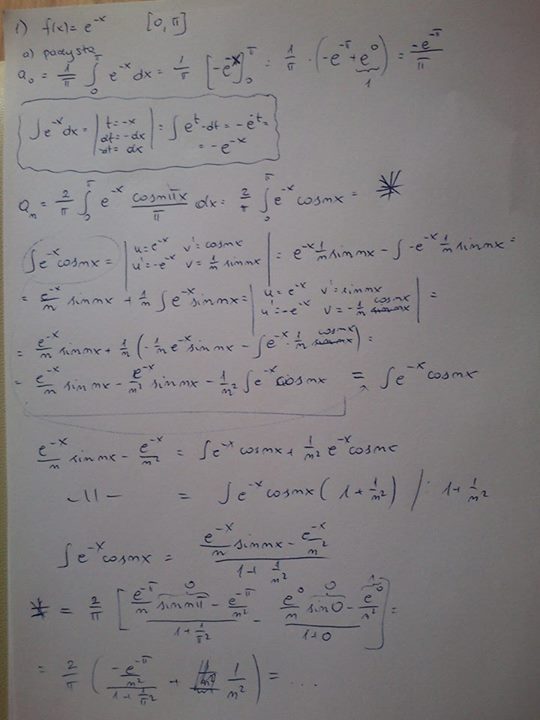 1) f(x) = e^-x [0, π]
a) parzysta
a₀ = 1/π ∫₀^π e^-x dx = 1/π [-e^-x]₀^π = 1/π · (-e^-π + e⁰) = -e^-π/π
1
∫e^-x dx = | t = -x dt = -dx -dt = dx | = ∫e^t -dt = -e^t =
= -e^-x
aₙ = 2/π ∫₀^π e^-x cosnπx/π dx = 2/π ∫₀^π e^-x cosnx = *
∫e^-x cosnx = | u = e^-x v' = cosnx u' = -e^-x v = 1/n sinnx | = e^-x 1/n sinnx - ∫-e^-x 1/n sinnx =
= e^-x/n sinnx + 1/n ∫e^-x sinnx = | u = e^-x v' = sinnx u' = -e^-x v = -1/n cosnx | =
= e^-x/n sinnx + 1/n (-1/n e^-x sinnx - ∫e^-x · 1/n cosnx) =
= e^-x/n sinnx - e^-x/n² sinnx - 1/n² ∫e^-x cosnx = ∫e^-x cosnx
e^-x/n sinnx - e^-x/n² = ∫e^-x cosnx + 1/n² e^-x cosnx
-11- = ∫e^-x cosnx (1 + 1/n²) / : 1 + 1/n²
∫e^-x cosnx = (e^-x/n sinnx - e^-x/n²)/(1 + 1/n²)
* = 2/π [(e^-π/n sinnπ - e^-π/n²)/(1 + 1/π²) - (e⁰/n sin0 - e⁰/n²)/(1+0)] =
0 0 1
= 2/π ((-e^-π/n²)/(1 + 1/π²) + 1/n²) = ...